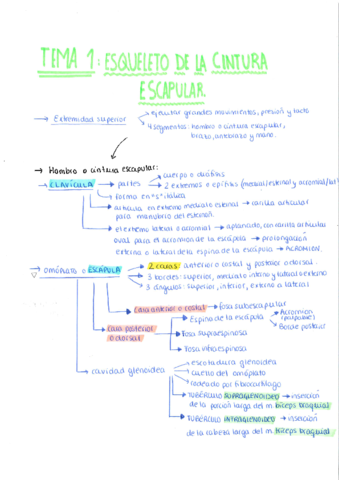 TEMA 1: ESQUELETO DE LA CINTURA
ESCAPULAR.
→ Extremidad superior
→ ejecutar grandes movimientos, presión y tacto
→ 4 segmentos: hombro o cintura escapular,
brazo, antebrazo y mano.
→ Hombro o cintura escapular:
→ CLAVÍCULA
→ partes
→ cuerpo o diáfisis
→ 2 extremos o epífisis (medial/esternal y acromial/lat
→ forma en "s" itálica
→ articula en extremo mediato esternal → carilla articular
para manubrio del esternón.
→ el extremo lateral o acromial → aplanado, con carilla articular
oval para el acromion de la escápula → prolongación
externa o lateral de la espina de la escápula → ACROMION.
→ OMÓPLATO o ESCÁPULA
→ 2 caras: anterior o costal y posterior o dorsal.
→ 3 bordes: superior, mediato interno y lateral externo
→ 3 ángulos: superior, inferior, externo o lateral
→ Cara anterior o costal → fosa subescapular
→ Cara posterior
o dorsal
→ Espina de la escápula
→ Acromion
(palpable)
→ Borde posterior
→ Fosa supraespinosa
→ Fosa infraespinosa
→ cavidad glenoidea
→ escotadura glenoidea
→ cuello del omóplato
→ rodeado por fibrocartílago
→ TUBÉRCULO SUPRAGLENOIDEO → inserción
de la porción larga del m. bíceps braquial
→ TUBÉRCULO INFRAGLENOIDEO → inserción
de la cabeza larga del m. bíceps braquial.